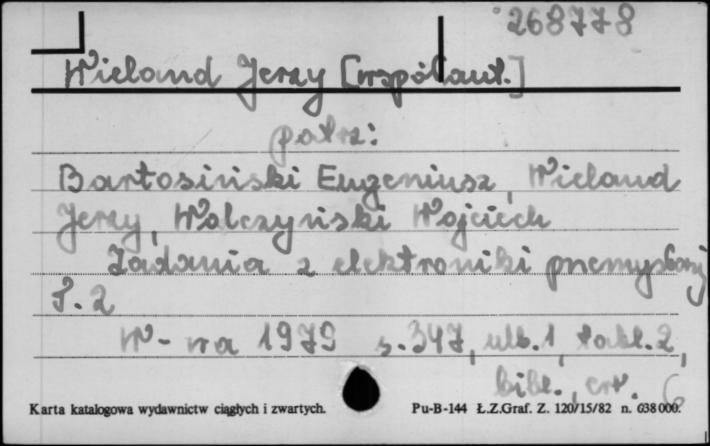 268778
Wieland Jerzy [współaut.]
patrz:
Bartosiński Eugeniusz, Wieland
Jerzy, Walczyński Wojciech
Zadania z elektroniki przemysłowej
T. 2
W-wa 1979 s. 347, ulb. 1, tabl. 2,
bibl.,
Karta katalogowa wydawnictw ciągłych i zwartych. Pu-B-144 Ł.Z.Graf. Z. 120/15/82 n. 638000.